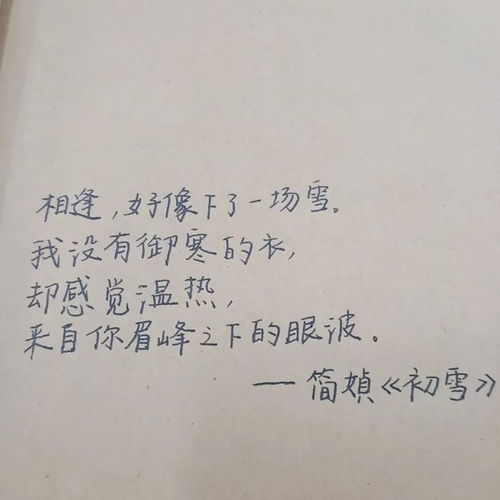 相逢,好像下了一场雪。
我没有御寒的衣,
却感觉温热,
来自你眉峰之下的眼波。
——简媜《初雪》